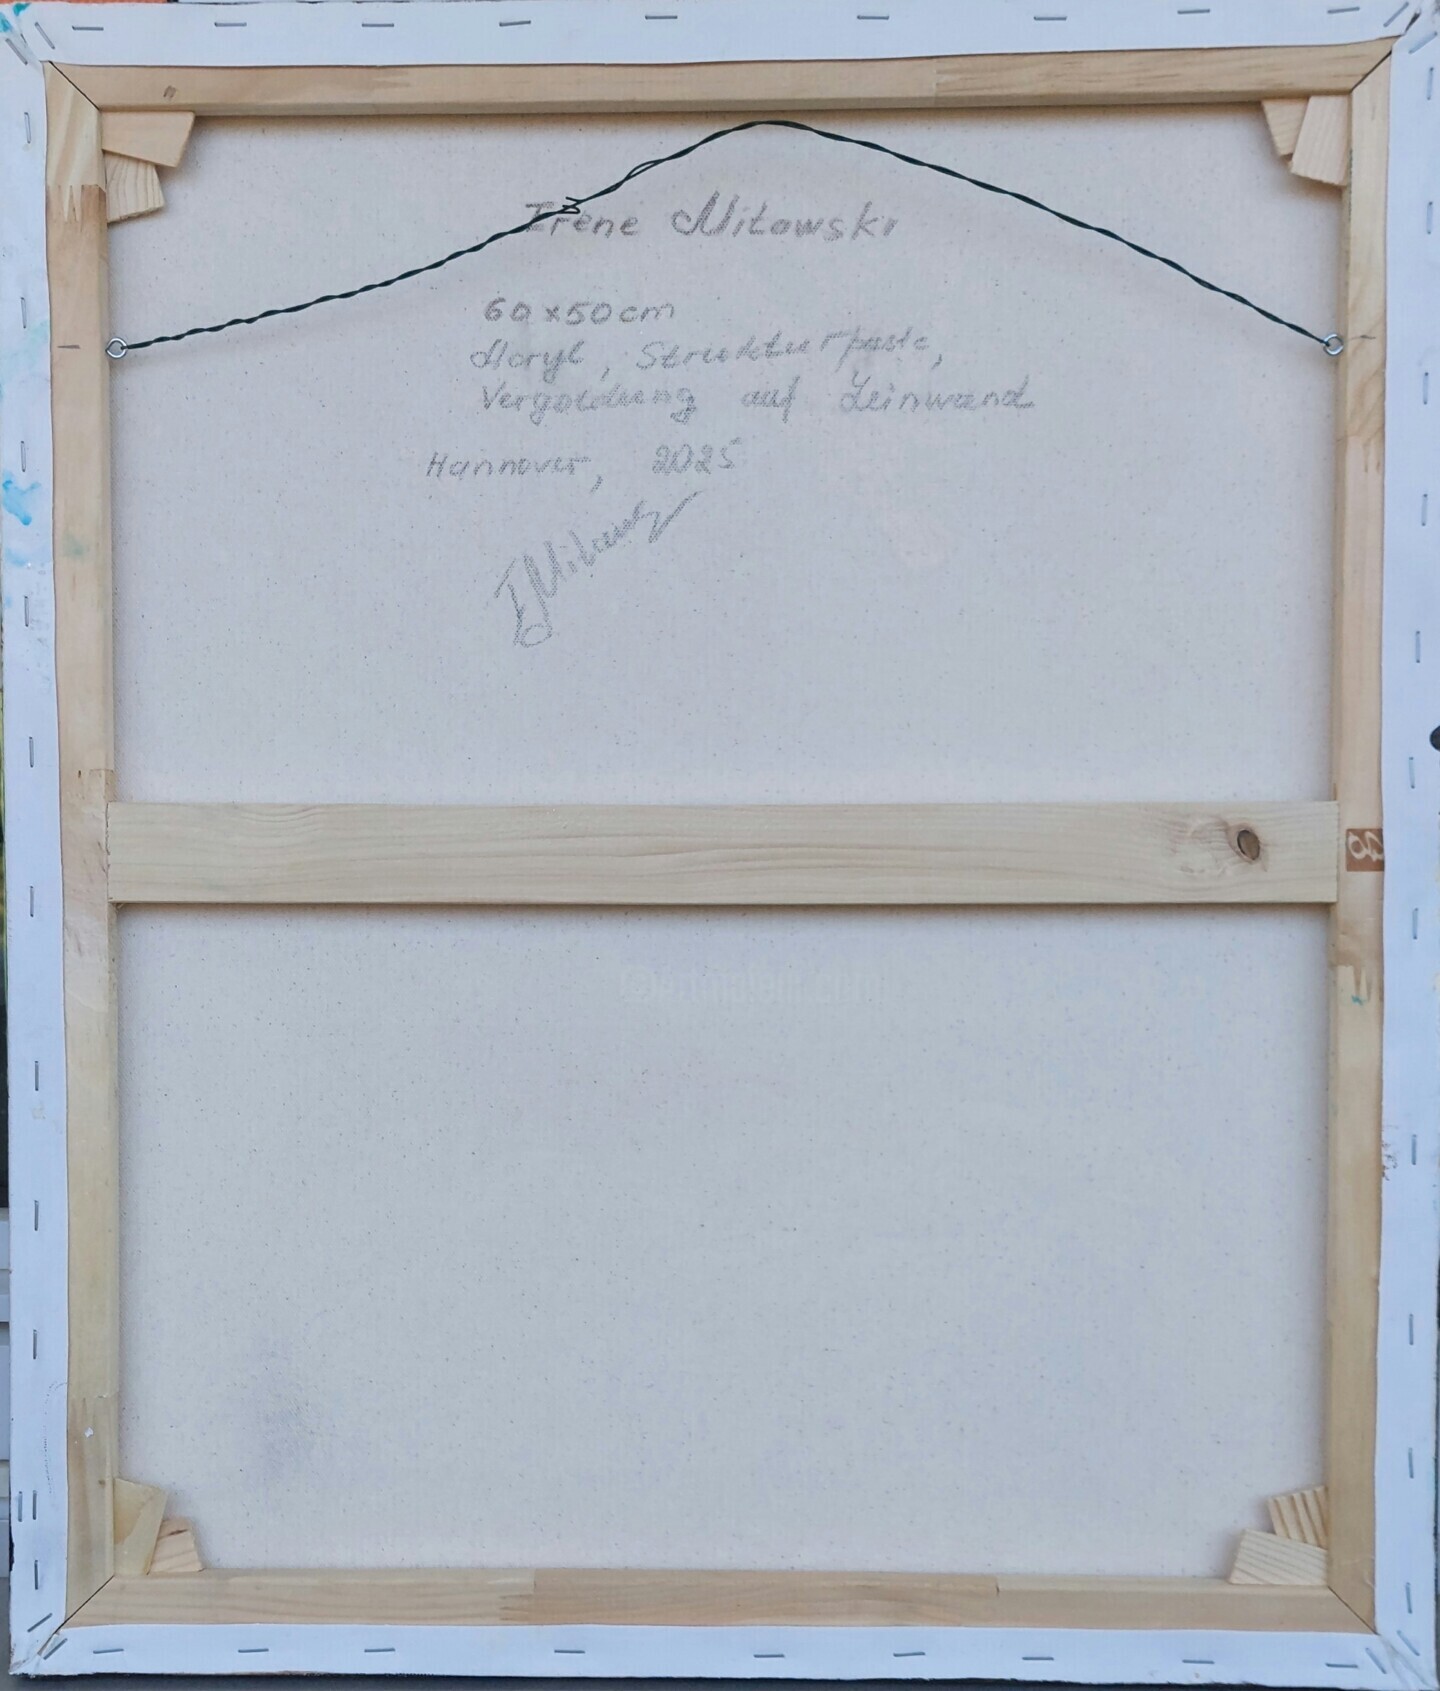 Irene Mitowski
60 x 50 cm
Acryl, Strukturpaste,
Vergoldung auf Leinwand
Hannover, 2025